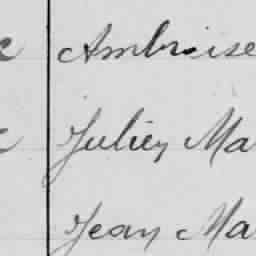 Ambroise
Julien Ma
Jean Ma